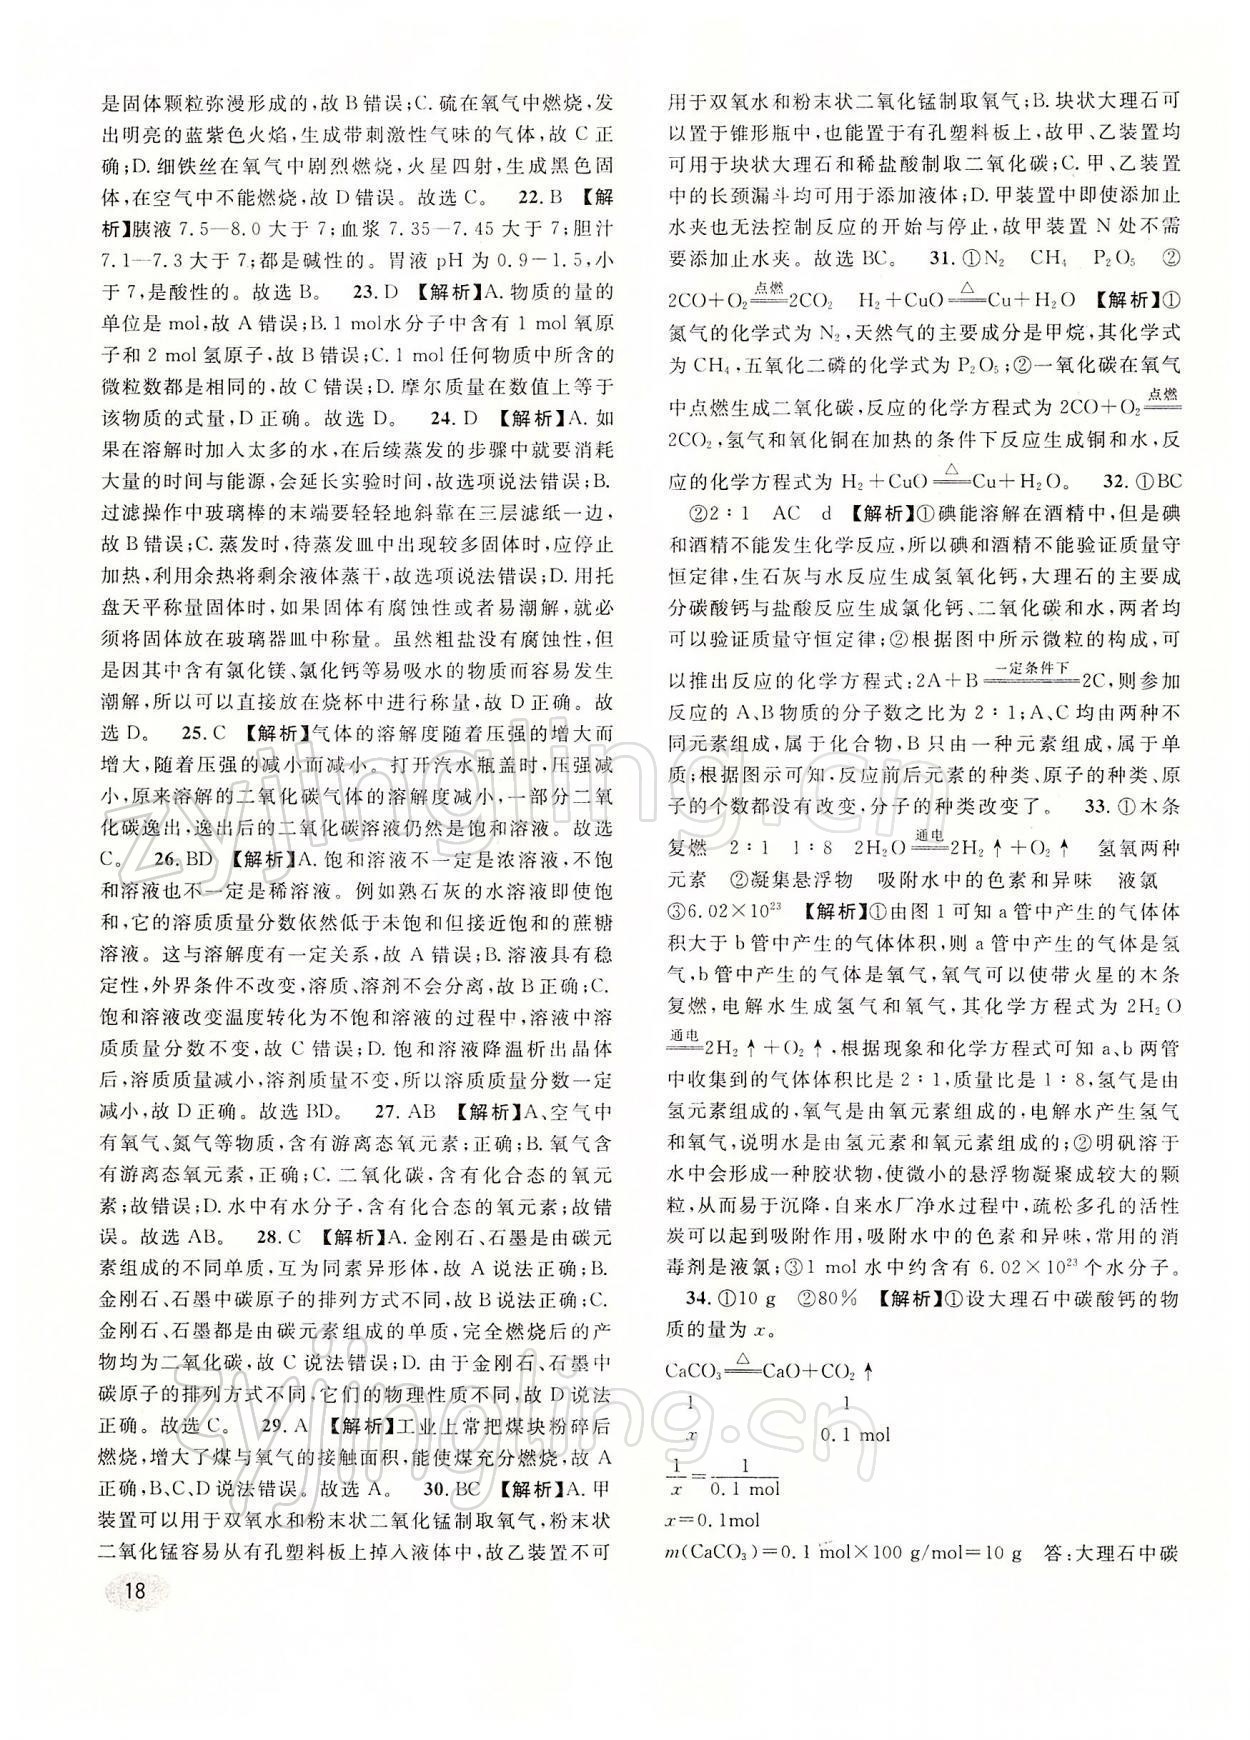 是固体颗粒弥漫形成的,故B错误;C. 硫在氧气中燃烧,发
出明亮的蓝紫色火焰,生成带刺激性气味的气体,故C正
确;D. 细铁丝在氧气中剧烈燃烧,火星四射,生成黑色固
体,在空气中不能燃烧,故D错误。故选C。 22. B 【解
析】胰液7.5—8.0大于7;血浆7.35—7.45大于7;胆汁
7.1—7.3大于7;都是碱性的。胃液pH为0.9-1.5,小
于7,是酸性的。故选B。 23. D 【解析】A. 物质的量的
单位是mol,故A错误;B. 1 mol水分子中含有1 mol氧原
子和2 mol氢原子,故B错误;C. 1 mol任何物质中所含的
微粒数都是相同的,故C错误;D. 摩尔质量在数值上等于
该物质的式量,D正确。故选D。 24. D 【解析】A. 如
果在溶解时加入太多的水,在后续蒸发的步骤中就要消耗
大量的时间与能源,会延长实验时间,故选项说法错误;B.
过滤操作中玻璃棒的末端要轻轻地斜靠在三层滤纸一边,
故B错误;C. 蒸发时,待蒸发皿中出现较多固体时,应停止
加热,利用余热将剩余液体蒸干,故选项说法错误;D. 用托
盘天平称量固体时,如果固体有腐蚀性或者易潮解,就必
须将固体放在玻璃器皿中称量。虽然粗盐没有腐蚀性,但
是因其中含有氯化镁、氯化钙等易吸水的物质而容易发生
潮解,所以可以直接放在烧杯中进行称量,故D正确。故
选D。 25. C 【解析】气体的溶解度随着压强的增大而
增大,随着压强的减小而减小。打开汽水瓶盖时,压强减
小,原来溶解的二氧化碳气体的溶解度减小,一部分二氧
化碳逸出,逸出后的二氧化碳溶液仍然是饱和溶液。故选
C。 26. BD 【解析】A. 饱和溶液不一定是浓溶液,不饱
和溶液也不一定是稀溶液。例如熟石灰的水溶液即使饱
和,它的溶质质量分数依然低于未饱和但接近饱和的蔗糖
溶液。这与溶解度有一定关系,故A错误;B. 溶液具有稳
定性,外界条件不改变,溶质、溶剂不会分离,故B正确;C.
饱和溶液改变温度转化为不饱和溶液的过程中,溶液中溶
质质量分数不变,故C错误;D. 饱和溶液降温析出晶体
后,溶质质量减小,溶剂质量不变,所以溶质质量分数一定
减小,故D正确。故选BD。 27. AB 【解析】A、空气中
有氧气、氮气等物质,含有游离态氧元素;正确;B. 氧气含
有游离态氧元素,正确;C. 二氧化碳,含有化合态的氧元
素;故错误;D. 水中有水分子,含有化合态的氧元素;故错
误。故选AB。 28. C 【解析】A. 金刚石、石墨是由碳元
素组成的不同单质,互为同素异形体,故A说法正确;B.
金刚石、石墨中碳原子的排列方式不同,故B说法正确;C.
金刚石、石墨都是由碳元素组成的单质,完全燃烧后的产
物均为二氧化碳,故C说法错误;D. 由于金刚石、石墨中
碳原子的排列方式不同,它们的物理性质不同,故D说法
正确。故选C。 29. A 【解析】工业上常把煤块粉碎后
燃烧,增大了煤与氧气的接触面积,能使煤充分燃烧,故A
正确,B、C、D说法错误。故选A。 30. BC 【解析】A. 甲
装置可以用于双氧水和粉末状二氧化锰制取氧气,粉末状
二氧化锰容易从有孔塑料板上掉入液体中,故乙装置不可
18
用于双氧水和粉末状二氧化锰制取氧气;B. 块状大理石可
以置于锥形瓶中,也能置于有孔塑料板上,故甲、乙装置均
可用于块状大理石和稀盐酸制取二氧化碳;C. 甲、乙装置
中的长颈漏斗均可用于添加液体;D. 甲装置中即使添加止
水夹也无法控制反应的开始与停止,故甲装置N处不需
要添加止水夹。故选BC。 31. ①N₂ CH₄ P₂O₅ ②
2CO+O₂ 点燃══ 2CO₂ H₂+CuO △══ Cu+H₂O 【解析】①
氮气的化学式为N₂,天然气的主要成分是甲烷,其化学式
为CH₄,五氧化二磷的化学式为P₂O₅;②一氧化碳在氧气
中点燃生成二氧化碳,反应的化学方程式为2CO+O₂ 点燃══
2CO₂,氢气和氧化铜在加热的条件下反应生成铜和水,反
应的化学方程式为H₂+CuO △══ Cu+H₂O。 32. ①BC
②2∶1 AC d 【解析】①碘能溶解在酒精中,但是碘
和酒精不能发生化学反应,所以碘和酒精不能验证质量守
恒定律,生石灰与水反应生成氢氧化钙,大理石的主要成
分碳酸钙与盐酸反应生成氯化钙、二氧化碳和水,两者均
可以验证质量守恒定律;②根据图中所示微粒的构成,可
以推出反应的化学方程式:2A+B 一定条件下══ 2C,则参加
反应的A、B物质的分子数之比为2∶1;A、C均由两种不
同元素组成,属于化合物,B只由一种元素组成,属于单
质;根据图示可知,反应前后元素的种类、原子的种类、原
子的个数都没有改变,分子的种类改变了。 33. ①木条
复燃 2∶1 1∶8 2H₂O 通电══ 2H₂↑+O₂↑ 氢氧两种
元素 ②凝集悬浮物 吸附水中的色素和异味 液氯
③6.02×10²³ 【解析】①由图1可知a管中产生的气体体
积大于b管中产生的气体体积,则a管中产生的气体是氢
气,b管中产生的气体是氧气,氧气可以使带火星的木条
复燃,电解水生成氢气和氧气,其化学方程式为2H₂O
通电══ 2H₂↑+O₂↑,根据现象和化学方程式可知a、b两管
中收集到的气体体积比是2∶1,质量比是1∶8,氢气是由
氢元素组成的,氧气是由氧元素组成的,电解水产生氢气
和氧气,说明水是由氢元素和氧元素组成的;②明矾溶于
水中会形成一种胶状物,使微小的悬浮物凝聚成较大的颗
粒,从而易于沉降,自来水厂净水过程中,疏松多孔的活性
炭可以起到吸附作用,吸附水中的色素和异味,常用的消
毒剂是液氯;③1 mol水中约含有6.02×10²³个水分子。
34. ①10 g ②80% 【解析】①设大理石中碳酸钙的物
质的量为x。
CaCO₃ △══ CaO+CO₂↑
1 1
x 0.1 mol
1/x=1/0.1 mol
x=0.1mol
m(CaCO₃)=0.1 mol×100 g/mol=10 g 答:大理石中碳
zyjingling.cn
zyjingling.cn